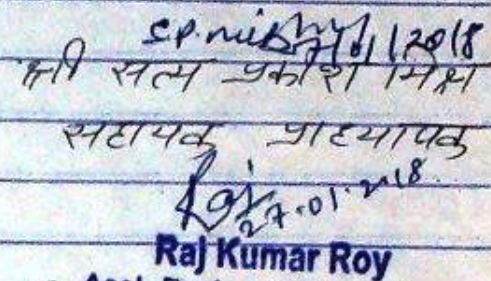 S.P. Mishra /01/2018
श्री सत्य प्रकाश मिश्र
सहायक प्राध्यापक
Raj 27.01.2018
Raj Kumar Roy